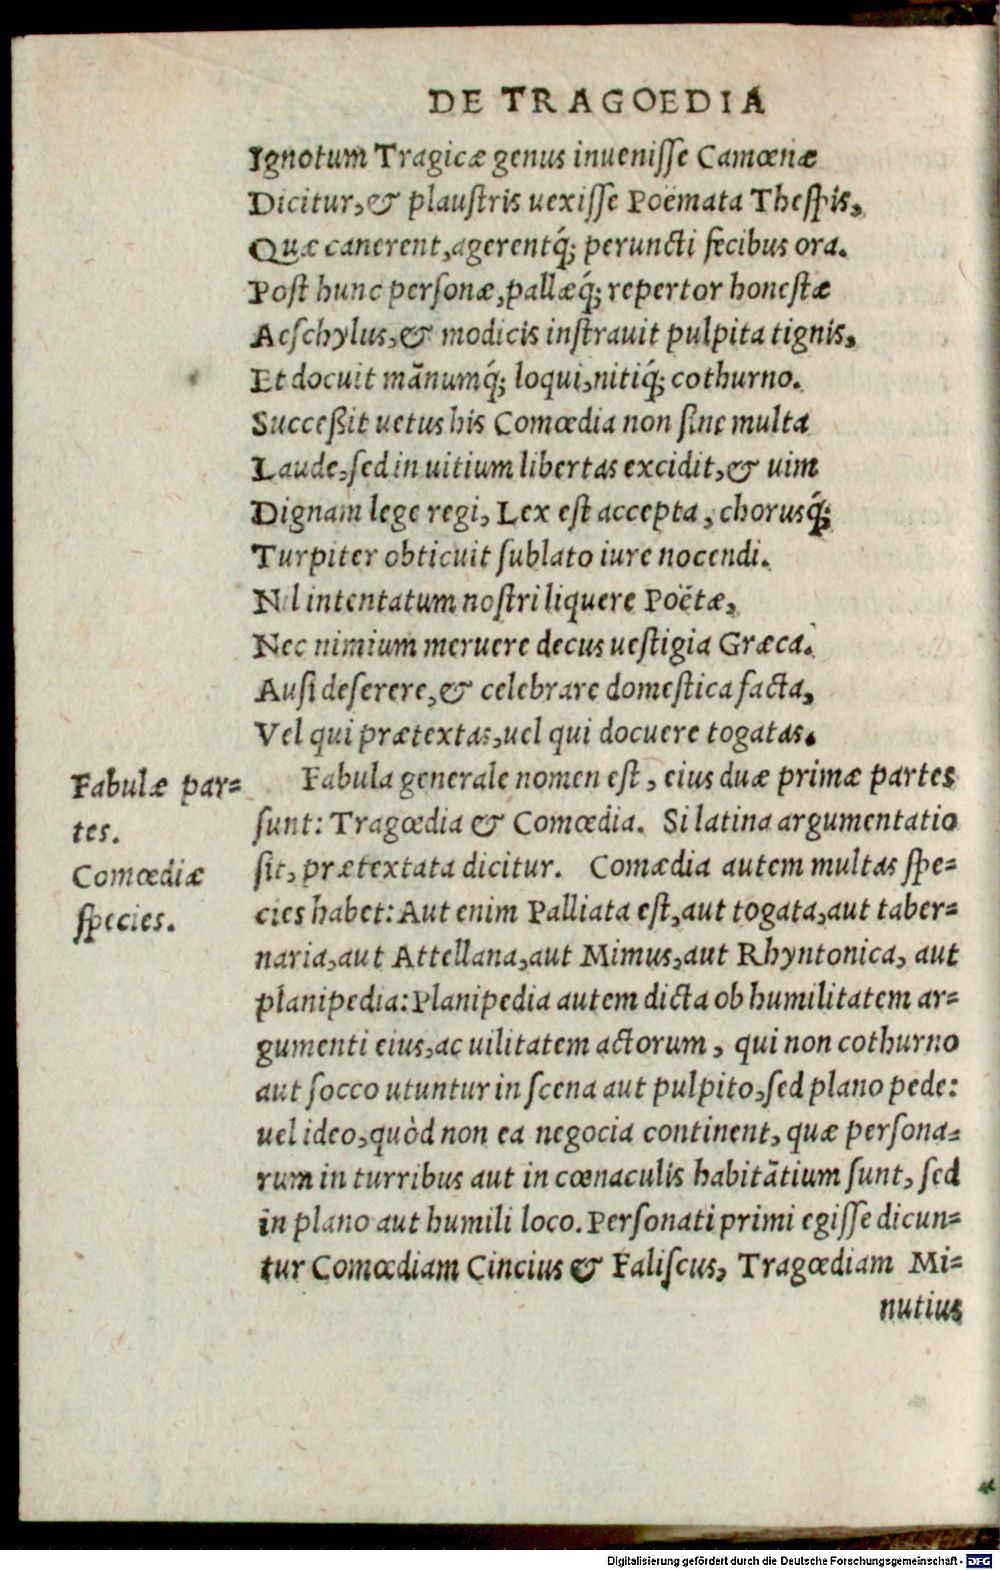 DE TRAGOEDIA
Ignotum Tragicæ genus inuenisse Camœnæ
Dicitur, & plaustris uexisse Poëmata Thespis,
Quæ canerent, agerentq́; peruncti fæcibus ora.
Post hunc personæ, pallæq́; repertor honestæ
Aeschylus, & modicis instrauit pulpita tignis,
Et docuit mãnumq́; loqui, nitiq́; cothurno.
Succeßit uetus his Comœdia non sine multa
Laude, sed in uitium libertas excidit, & uim
Dignam lege regi, Lex est accepta, chorusq́;
Turpiter obticuit sublato iure nocendi.
Nil intentatum nostri liquere Poëtæ,
Nec nimium meruere decus uestigia Græca.
Ausi deserere, & celebrare domestica facta,
Vel qui prætextas, uel qui docuere togatas.
Fabulæ par=
tes.
Comœdiæ
species.
Fabula generale nomen est, eius duæ primæ partes
sunt: Tragœdia & Comœdia. Si latina argumentatio
sit, prætextata dicitur. Comædia autem multas spe=
cies habet: Aut enim Palliata est, aut togata, aut taber=
naria, aut Attellana, aut Mimus, aut Rhyntonica, aut
planipedia: Planipedia autem dicta ob humilitatem ar=
gumenti eius, ac uilitatem actorum, qui non cothurno
aut socco utuntur in scena aut pulpito, sed plano pede:
uel ideo, quòd non ea negocia continent, quæ persona=
rum in turribus aut in cœnaculis habitãtium sunt, sed
in plano aut humili loco. Personati primi egisse dicun=
tur Comœdiam Cincius & Faliscus, Tragœdiam Mi=
nutius
Digitalisierung gefördert durch die Deutsche Forschungsgemeinschaft - DFG